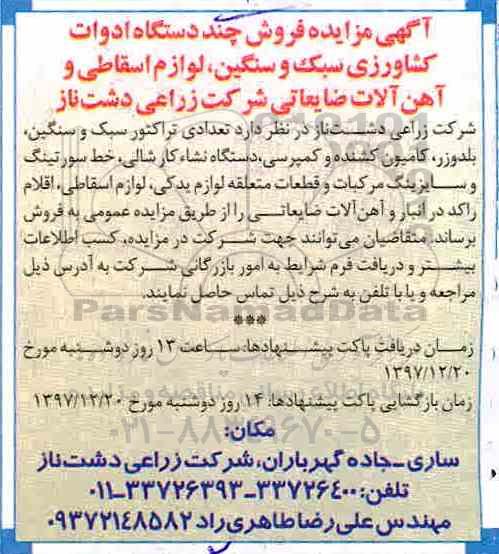 آگهی مزایده فروش چند دستگاه ادوات
کشاورزی سبک و سنگین، لوازم اسقاطی و
آهن آلات ضایعاتی شرکت زراعی دشت‌ناز
شرکت زراعی دشت‌ناز در نظر دارد تعدادی تراکتور سبک و سنگین،
بلدوزر، کامیون کشنده و کمپرسی، دستگاه نشاء کار شالی، خط سورتینگ
و سایزینگ مرکبات و قطعات متعلقه لوازم یدکی، لوازم اسقاطی، اقلام
راکد در انبار و آهن‌آلات ضایعاتی را از طریق مزایده عمومی به فروش
برساند. متقاضیان می‌توانند جهت شرکت در مزایده، کسب اطلاعات
بیشتر و دریافت فرم شرایط به امور بازرگانی شرکت به آدرس ذیل
مراجعه و یا با تلفن به شرح ذیل تماس حاصل نمایند.
ParsNamadData
***
زمان دریافت پاکت پیشنهادها: ساعت ۱۳ روز دوشنبه مورخ
۱۳۹۷/۱۲/۲۰
زمان بازگشایی پاکت پیشنهادها: ۱۴ روز دوشنبه مورخ ۱۳۹۷/۱۲/۲۰
۰۲۱-۸۸۳۴۹۶۷۰-۵
مکان:
ساری-جاده گهرباران، شرکت زراعی دشت‌ناز
تلفن: ۳۳۷۲۶۴۰۰-۳۳۷۲۶۳۹۳-۰۱۱
مهندس علی رضا طاهری راد ۰۹۳۷۲۱۴۸۵۸۲